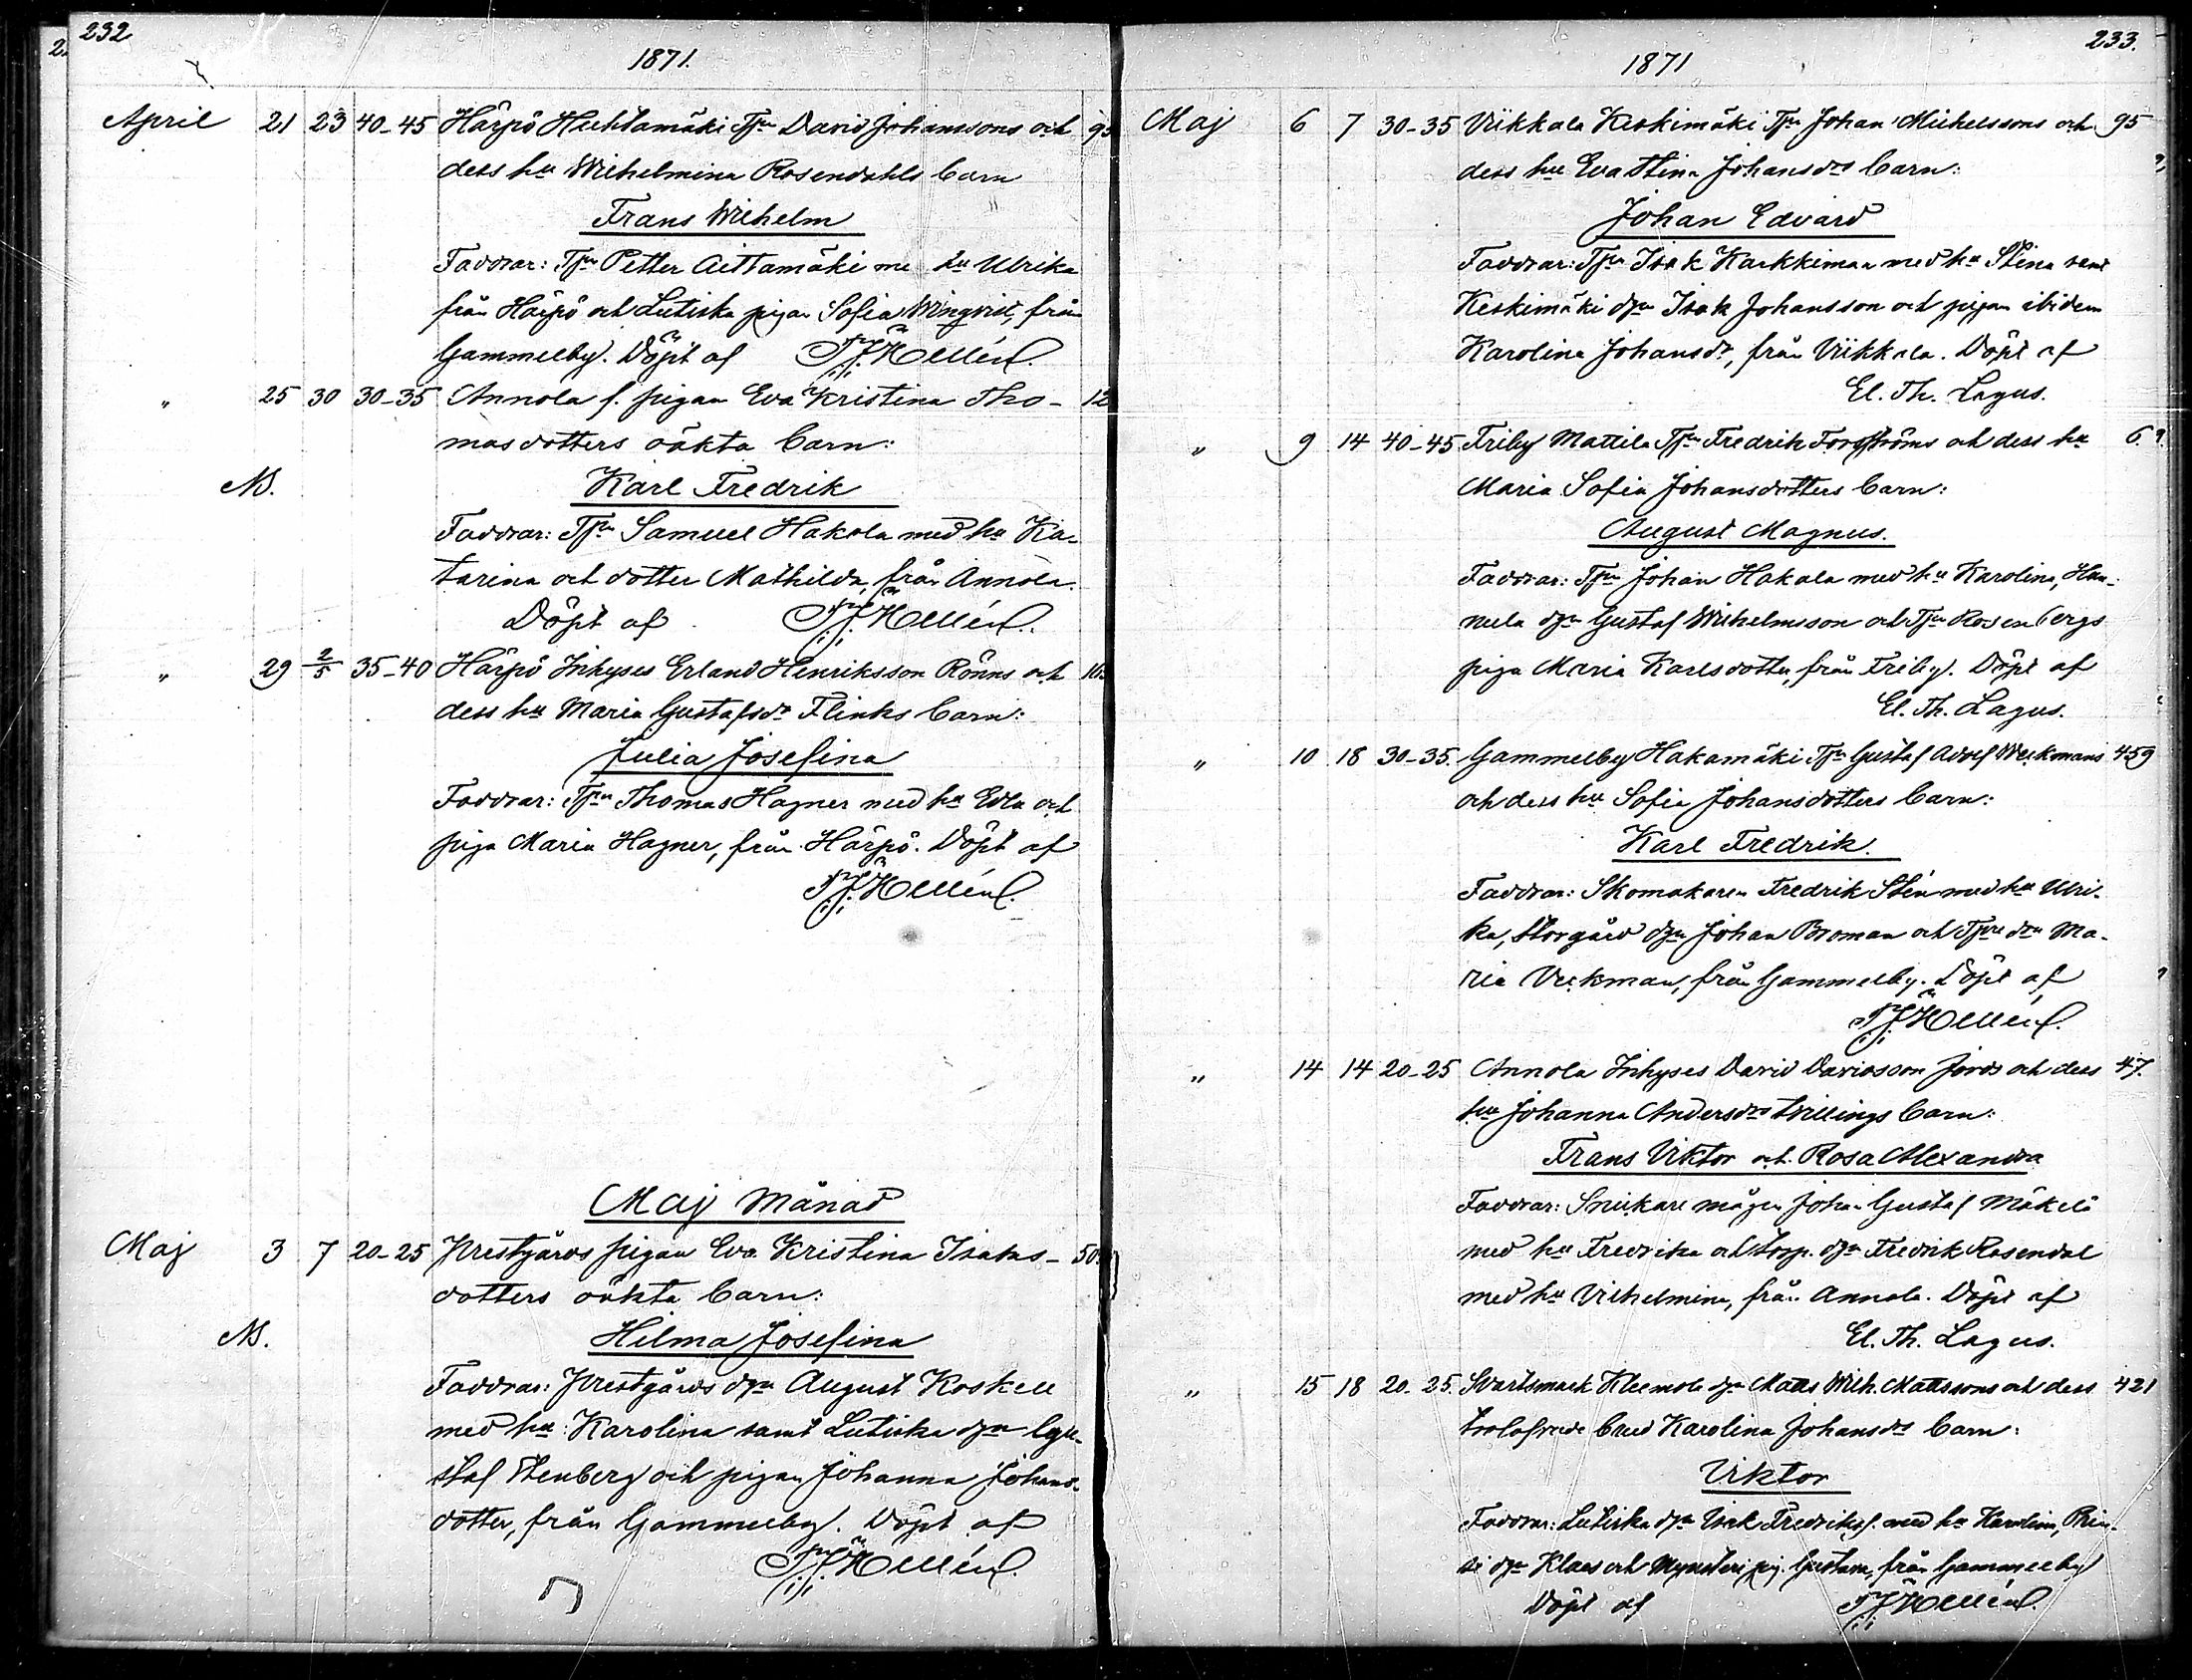 232
1871.
April 21 23 40-45 Härpö Huhtamäki Tpn David Johanssons och
dess hu Wilhelmina Rosendahls barn
Frans Wilhelm
Faddrar: Tpn Petter Aittamäki me hu Ulrika
från Härpö och Lutiska pigan Sofia Winqvist, från
Gammelby. Döpt af
" 25 30 30-35 Annola f. pigan Eva Kristina Tho- 12
masdotters oäkta barn:
Karl Fredrik
Faddrar: Tpn Samuel Hakola med hu Ka-
tarina och dotter Mathilda, från Annola.
Döpt af
" 29 2/5 35-40 Härpö Inhyses Erland Henriksson Rönns och
dess hu Maria Gustafsdr Flinks barn:
Julia Josefina
Faddrar: Tpn Thomas Hagner med hu Edla och
piga Maria Hagner, från Härpö. Döpt af
Maj Månad
Maj 3 7 20-25 Prestgårds pigan Eva Kristina Isaks- 50
dotters oäkta barn:
Hilma Josefina
Faddrar: Prestgårds dgn August Koskell
med hu Karolina samt Lutiska dgn Gu-
staf Stenberg och pigan Johanna Johans-
dotter, från Gammelby. Döpt af
233.
1871
Maj 6 7 30-35 Viikkala Keskimäki Tpn Johan Michelssons och 95
dess hu Eva Stina Johansdrs barn:
Johan Edvard
Faddrar: Tpn Isak Karkkiman med hu Stina samt
Keskimäki dgn Isak Johansson och pigan ibidem
Karolina Johansdr, från Viikkala. Döpt af
El. Th. Lagus.
" 9 14 40-45 Friby Mattila Tpn Fredrik Forsströms och dess hu 6
Maria Sofia Johansdotters barn:
August Magnus.
Faddrar: Tpn Johan Hakala med hu Karolina, Han-
nula dgn Gustaf Wilhelmsson och Tpn Rosenbergs
piga Maria Karlsdotter, från Friby. Döpt af
El. Th. Lagus.
" 10 18 30-35. Gammelby Hakamäki Tpn Gustaf Adolf Weckmans 459
och dess hu Sofia Johansdotters barn:
Karl Fredrik.
Faddrar: Skomakaren Fredrik Stén med hu Ulri-
ka, Storgård dgn Johan Broman och Ma-
ria Veckman, från Gammelby. Döpt af
" 14 14 20-25 Annola Inhyses David Davidsson Jords och dess 47.
hu Johanna Andersdrs tvillings barn:
Frans Viktor och Rosa Alexandra
Faddrar: Snickare mågen Johan Gustaf Mäkelä
med hu Fredrika och torp. dgn Fredrik Rosendal
med hu Vilhelmina, från Annola. Döpt af
El. Th. Lagus.
" 15 18 20-25. Svartsmark Kleemola dgn Matts Wilh. Mattssons och dess 421
trolofvade brud Karolina Johansdr barn:
Viktor
Faddrar: Lutiska dgn Isak Fredriks. med hu Karolina,
dgn Klaes och pig. Gustava, från Gammelby
Döpt af